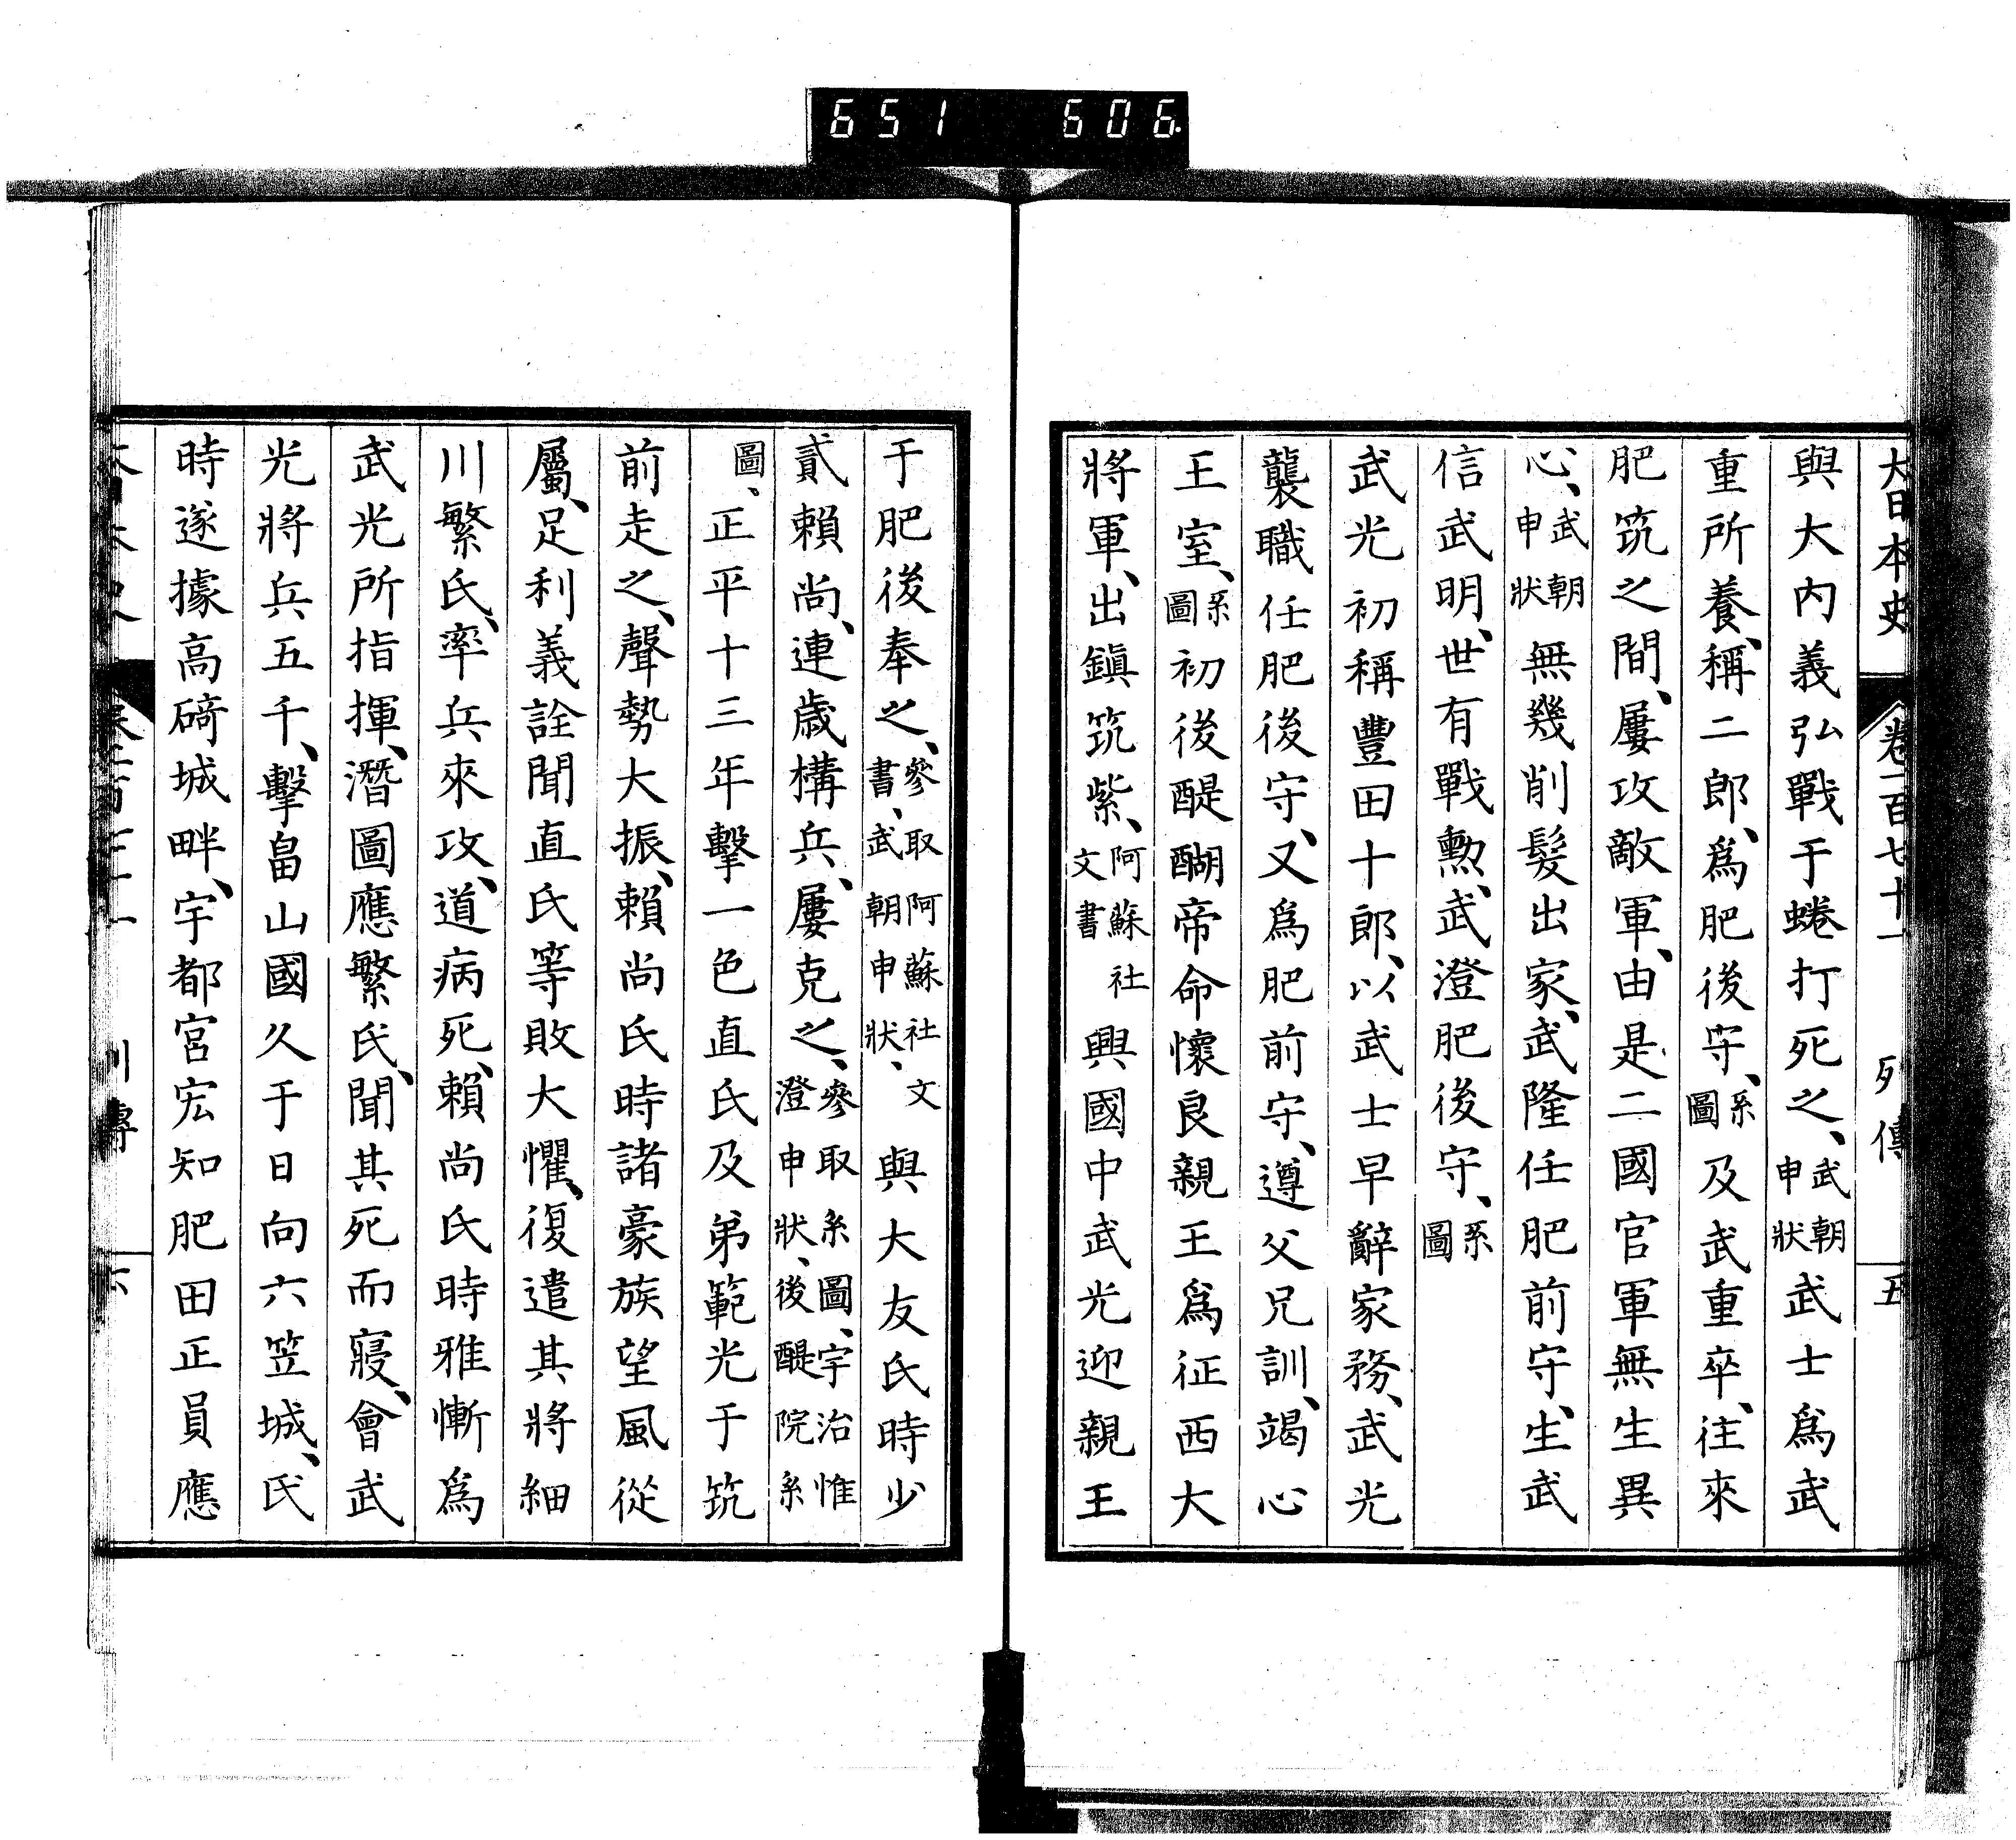 651 606
大日本史 卷一百七十一 列傳 五
與大内義弘戰于蜷打死之、武朝申狀武士爲武
重所養、稱二郎、爲肥後守、系圖及武重卒、往來
肥筑之間、屢攻敵軍、由是二國官軍無生異
心、武朝申狀無幾削髮出家、武隆任肥前守、生武
信武明、世有戰勲、武澄肥後守、系圖
武光初稱豐田十郎、以武士早辭家務、武光
襲職任肥後守、又爲肥前守、遵父兄訓、竭心
王室、系圖初後醍醐帝命懷良親王爲征西大
將軍、出鎭筑紫、阿蘇社文書興國中武光迎親王
于肥後奉之、參取阿蘇社文書、武朝申狀、與大友氏時少
貳賴尚、連歲構兵、屢克之、參取系圖、宇治惟澄申狀、後醍院系
圖、正平十三年擊一色直氏及弟範光于筑
前走之、聲勢大振、賴尚氏時諸豪族望風從
屬、足利義詮聞直氏等敗大懼、復遣其將細
川繁氏、率兵來攻、道病死、賴尚氏時雅慚爲
武光所指揮、潛圖應繁氏、聞其死而寢、會武
光將兵五千、擊畠山國久于日向六笠城、氏
時遂據高﨑城畔、宇都宮宏知肥田正員應